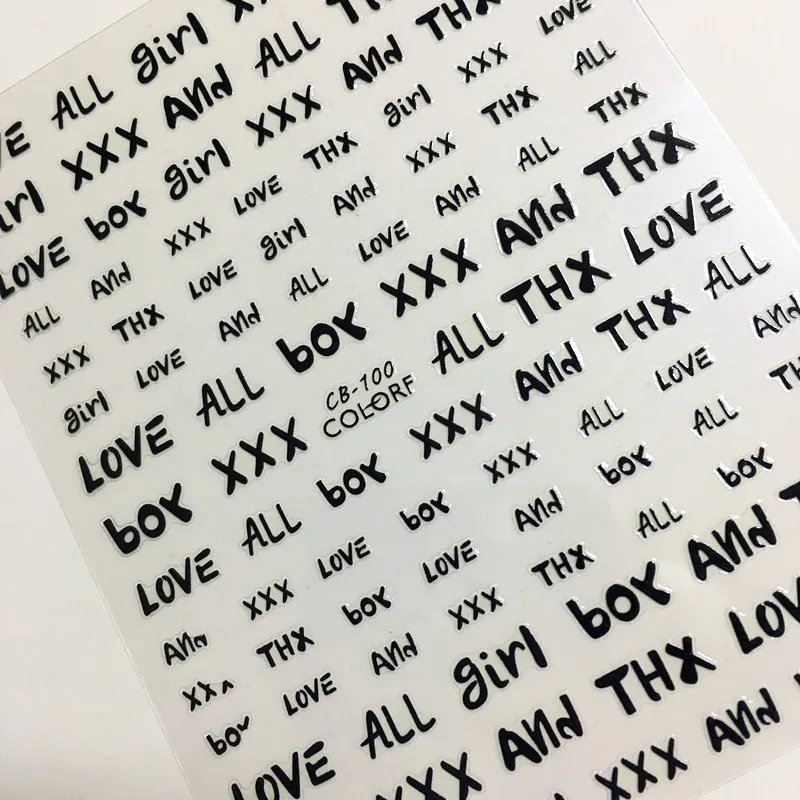 VE ALL girl
girl XXX And ALL TH
LOVE boy girl XXX And THX
ALL And XXX LOVE THX girl XXX LOVE
XXX THX LOVE girl And XXX THX ALL
girl LOVE And ALL LOVE And ALL THX
LOVE ALL boy XXX And THX
boy XXX CB-100 ALL THX LOVE
COLORF
LOVE ALL boy XXX And THX ALL
And XXX LOVE boy XXX ALL LOVE And
XXX THX boy LOVE And boy ALL TH
boy LOVE And XXX THX ALL boy
LOVE ALL girl boy And
XXX And THX LOV
XXX And